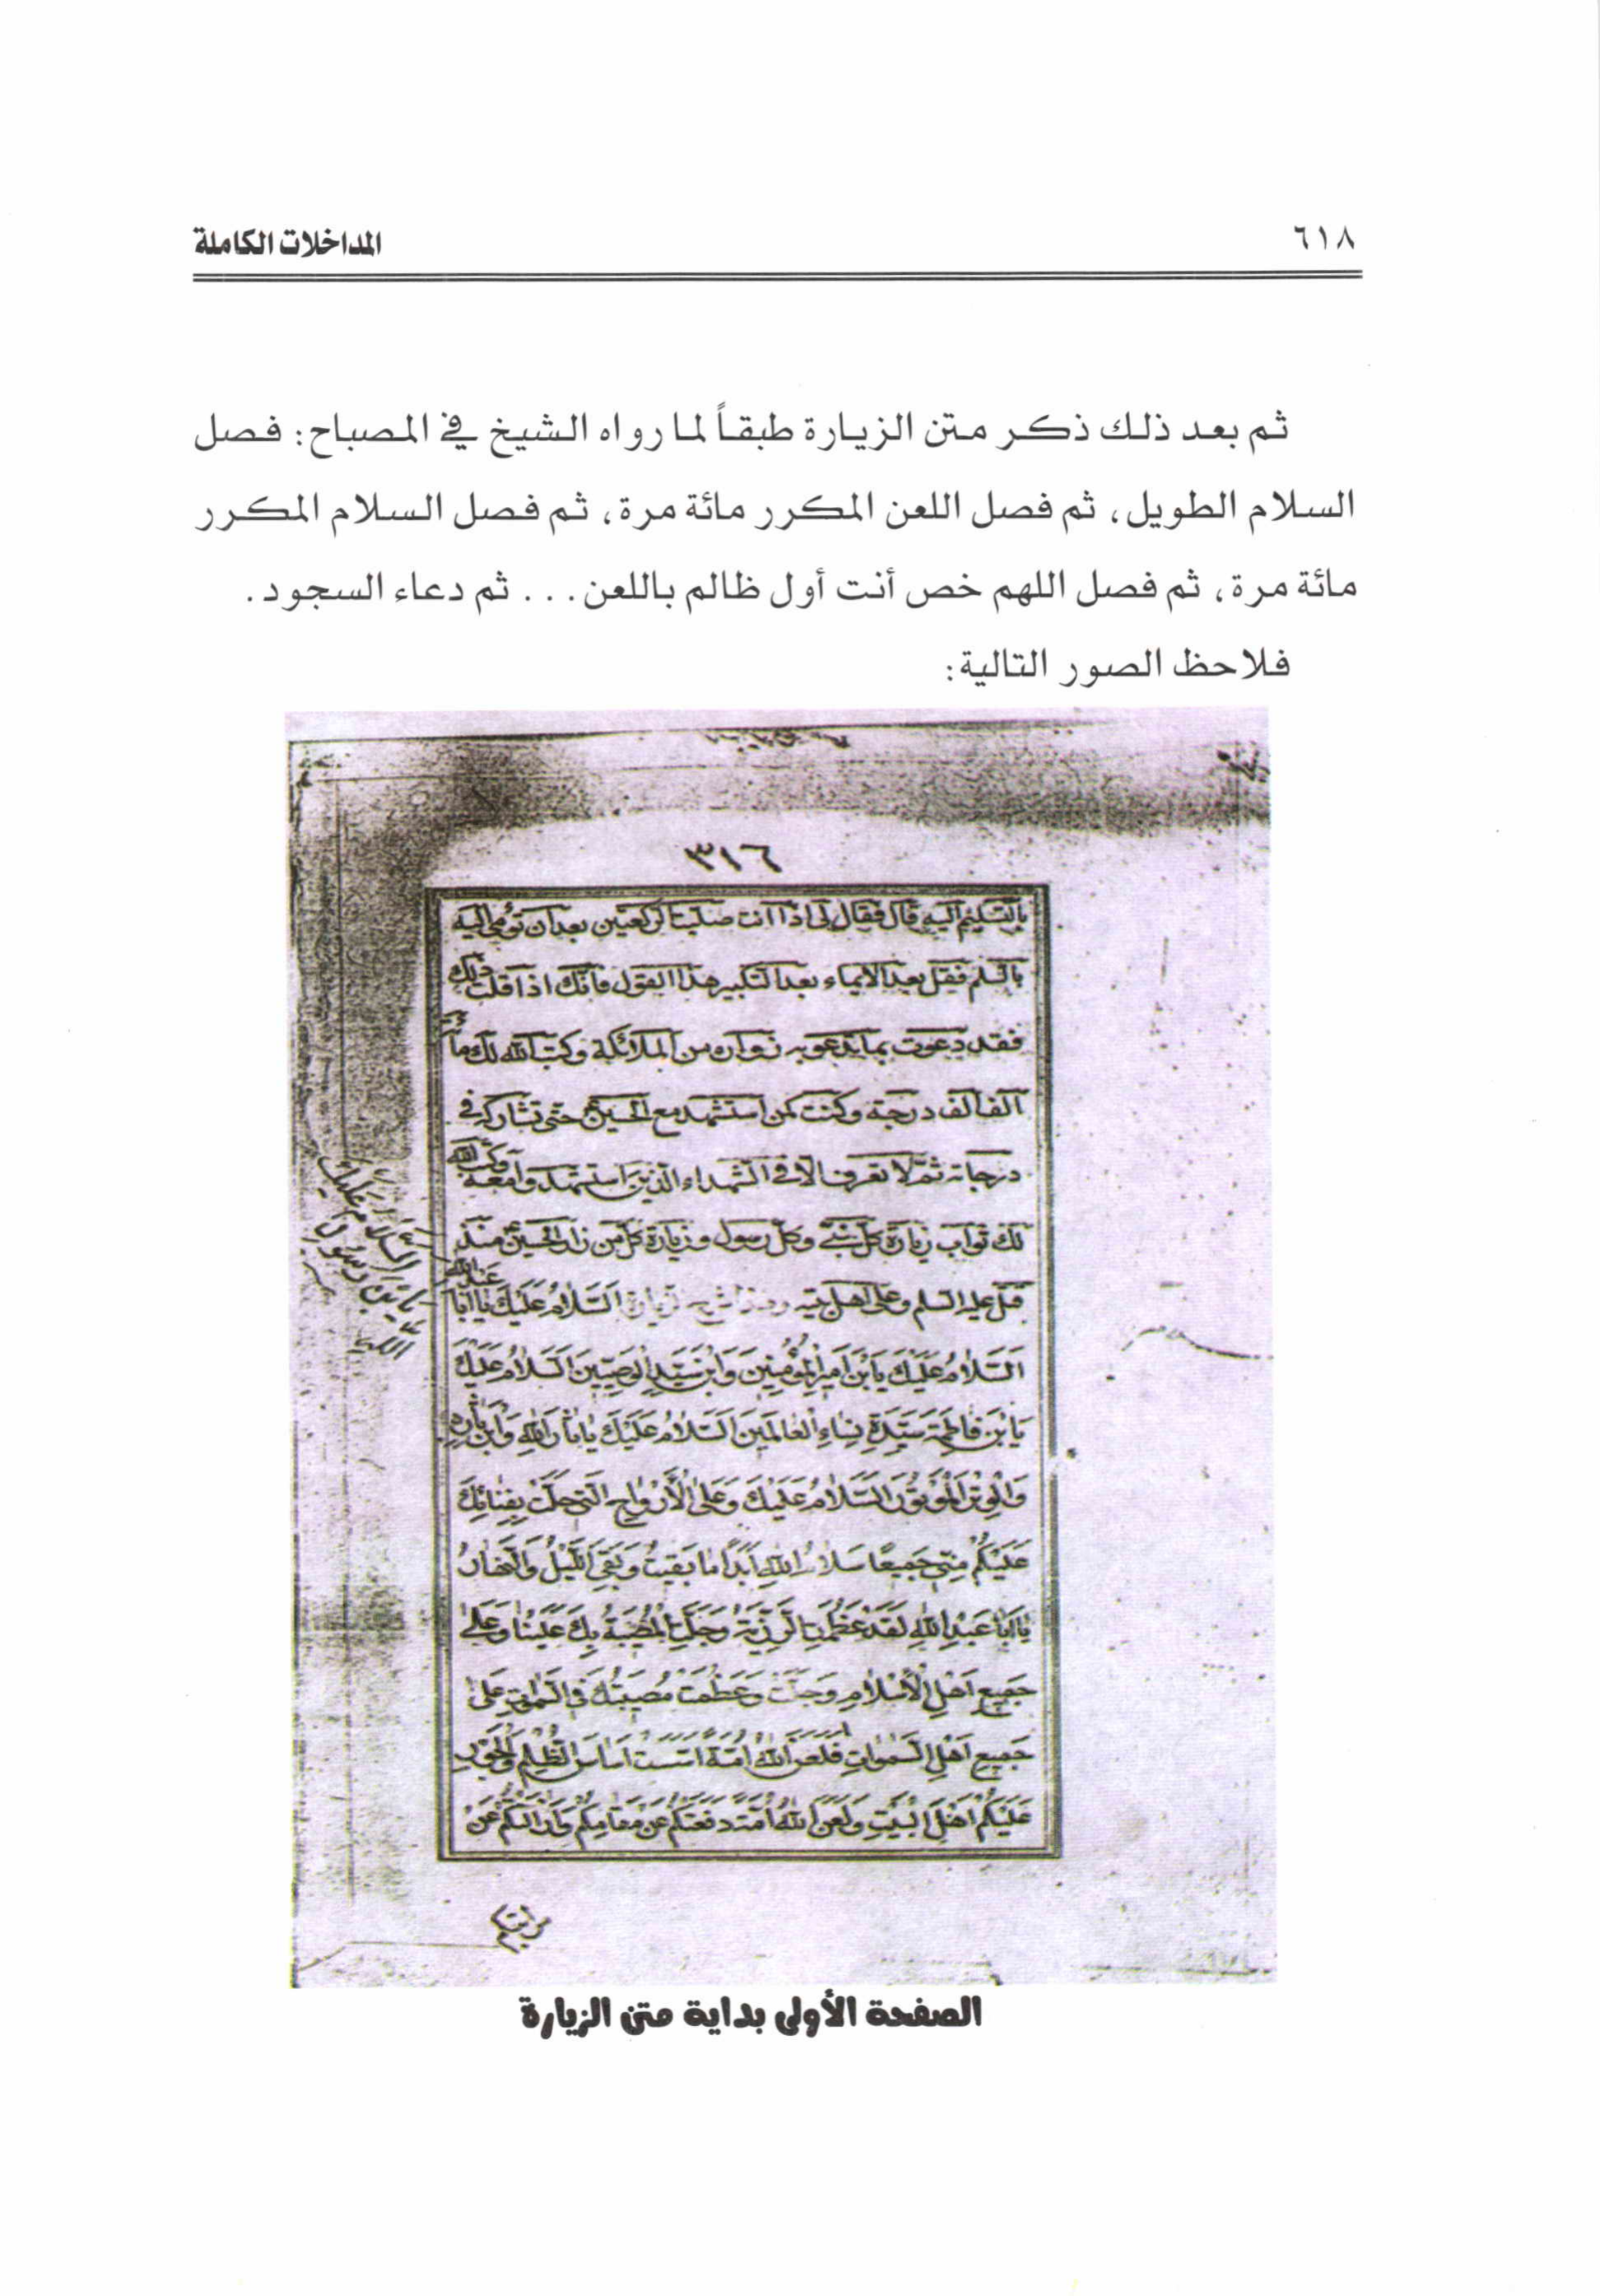 ٦١٨
المداخلات الكاملة
ثم بعد ذلك ذكر متن الزيارة طبقاً لما رواه الشيخ في المصباح: فصل
السلام الطويل، ثم فصل اللعن المكرر مائة مرة، ثم فصل السلام المكرر
مائة مرة، ثم فصل اللهم خص أنت أول ظالم باللعن... ثم دعاء السجود.
فلاحظ الصور التالية:
٣١٦
بالتسليم اليه قال فقال لى اذا انت صليت الركعتين بعد ان تومى اليه
بالسلم فقل بعد الايماء بعد التكبير هذا القول فانك اذا قلت ذلك
فقد دعوت بما يدعو به زواره من الملائكة وكتب الله لك مأئة
الف الف درجة وكنت كمن استشهد مع الحسين ع حتى تشاركهم فى
درجاته ثم لا تعرف الا فى الشهداء الذين استشهدوا معه وكتب الله
لك ثواب زيارة كل نبى وكل رسول وزيارة كل من زار الحسين منذ
قتل عليه السلم وعلى اهل بيته اَلسَّلامُ عَلَيْكَ يا اَبا عَبْدِ اللهِ
السَّلامُ عَلَيْكَ
يَا بْنَ رَسُولِ
اللهِ
اَلسَّلامُ عَلَيْكَ يَا بْنَ اَميرِ الْمُؤْمِنينَ وَابْنَ سَيِّدِ الْوَصِيّينَ اَلسَّلامُ عَلَيْكَ
يَا بْنَ فاطِمَةَ سَيِّدَةِ نِساءِ الْعالَمينَ اَلسَّلامُ عَلَيْكَ يا ثارَ اللهِ وَابْنَ ثارِهِ
وَالْوِتْرَ الْمَوْتُورَ اَلسَّلامُ عَلَيْكَ وَعَلَى الْأَرْواحِ الَّتى حَلَّتْ بِفِنائِكَ
عَلَيْكُمْ مِنّى جَميعًا سَلامُ اللهِ اَبَداً ما بَقيتُ وَبَقِىَ اللَّيْلُ وَالنَّهارُ
يا اَبا عَبْدِ اللهِ لَقَدْ عَظُمَتِ الرَّزِيَّةُ وَجَلَّتِ الْمُصيبَةُ بِكَ عَلَيْنا وَعَلى
جَميعِ اَهْلِ الْأِسْلامِ وَجَلَّتْ وَعَظُمَتْ مُصيبَتُكَ فِى السَّمواتِ عَلى
جَميعِ اَهْلِ السَّمواتِ فَلَعَنَ اللهُ اُمَّةً اَسَّسَتْ اَساسَ الظُّلْمِ وَالْجَوْرِ
عَلَيْكُمْ اَهْلَ الْبَيْتِ وَلَعَنَ اللهُ اُمَّةً دَفَعَتْكُمْ عَنْ مَقامِكُمْ وَاَزالَتْكُمْ عَنْ
مراتبكم
الصفحة الأولى بداية متن الزيارة